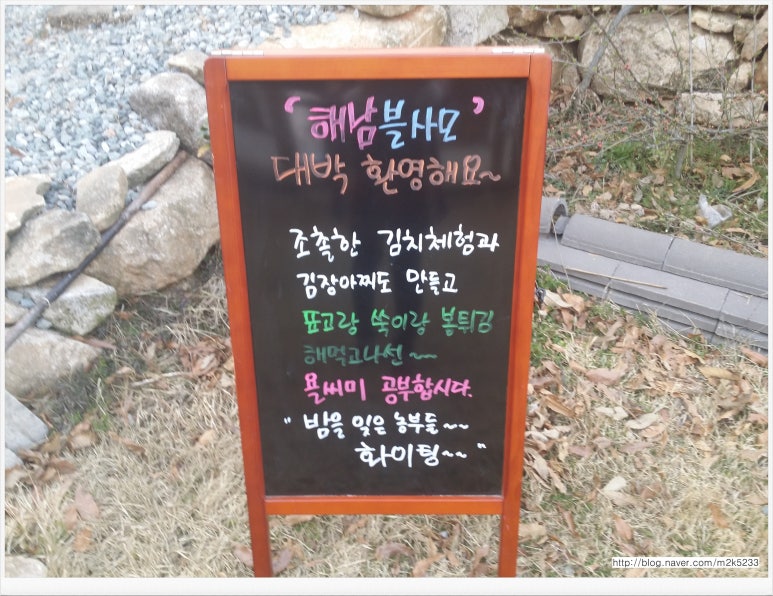 ‘해남블사모’
대박 환영해요~
조촐한 김치체험과
김장아찌도 만들고
표고랑 쑥이랑 봄튀김
해먹고나선~~
욜씨미 공부합시다.
" 밤을 잊은 농부들~~
화이팅~~ "
http://blog.naver.com/m2k5233